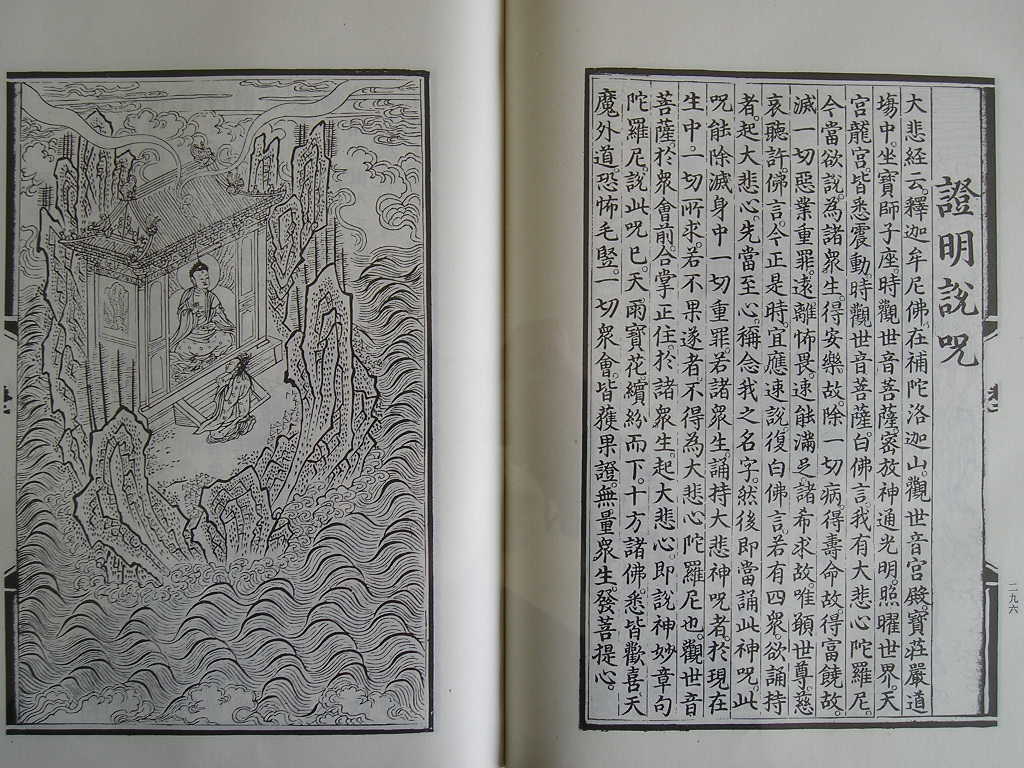 證明說呪
大悲經云。釋迦牟尼佛。在補陀洛迦山。觀世音宮殿。寶莊嚴道
場中。坐寶師子座。時觀世音菩薩。密放神通光明。照曜世界。天
宮龍宮。皆悉震動。時觀世音菩薩。白佛言。我有大悲心陀羅尼。
今當欲說。為諸眾生。得安樂故。除一切病。得壽命故。得富饒故。
滅一切惡業重罪。遠離怖畏。速能滿足諸希求故。唯願世尊。慈
哀聽許。佛言。今正是時。宜應速說。復白佛言。若有四眾。欲誦持
者。起大悲心。先當至心。稱念我之名字。然後即當誦此神呪。此
呪能除滅身中一切重罪。若諸眾生。誦持大悲神呪者。於現在
生中。一切所求。若不果遂者。不得為大悲心陀羅尼也。觀世音
菩薩。於眾會前。合掌正住。於諸眾生。起大悲心。即說神妙章句
陀羅尼。說此呪已。天雨寶花。繽紛而下。十方諸佛。悉皆歡喜。天
魔外道。恐怖毛竪。一切眾會。皆獲果證。無量眾生。發菩提心。
二九六